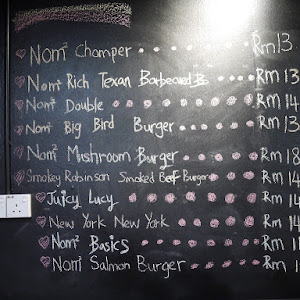 Nom² Chomper Rm 13
Nom² Rich Texan Barbecued B Rm 13
Nom² Double Rm 14
Nom² Big Bird Burger Rm 13
Nom² Mushroom Burger Rm 18
Smokey Robinson Smoked Beef Burger Rm 14
Juicy Lucy Rm 14
New York New York Rm 14
Nom² Basics Rm 1
Nom² Salmon Burger Rm 1